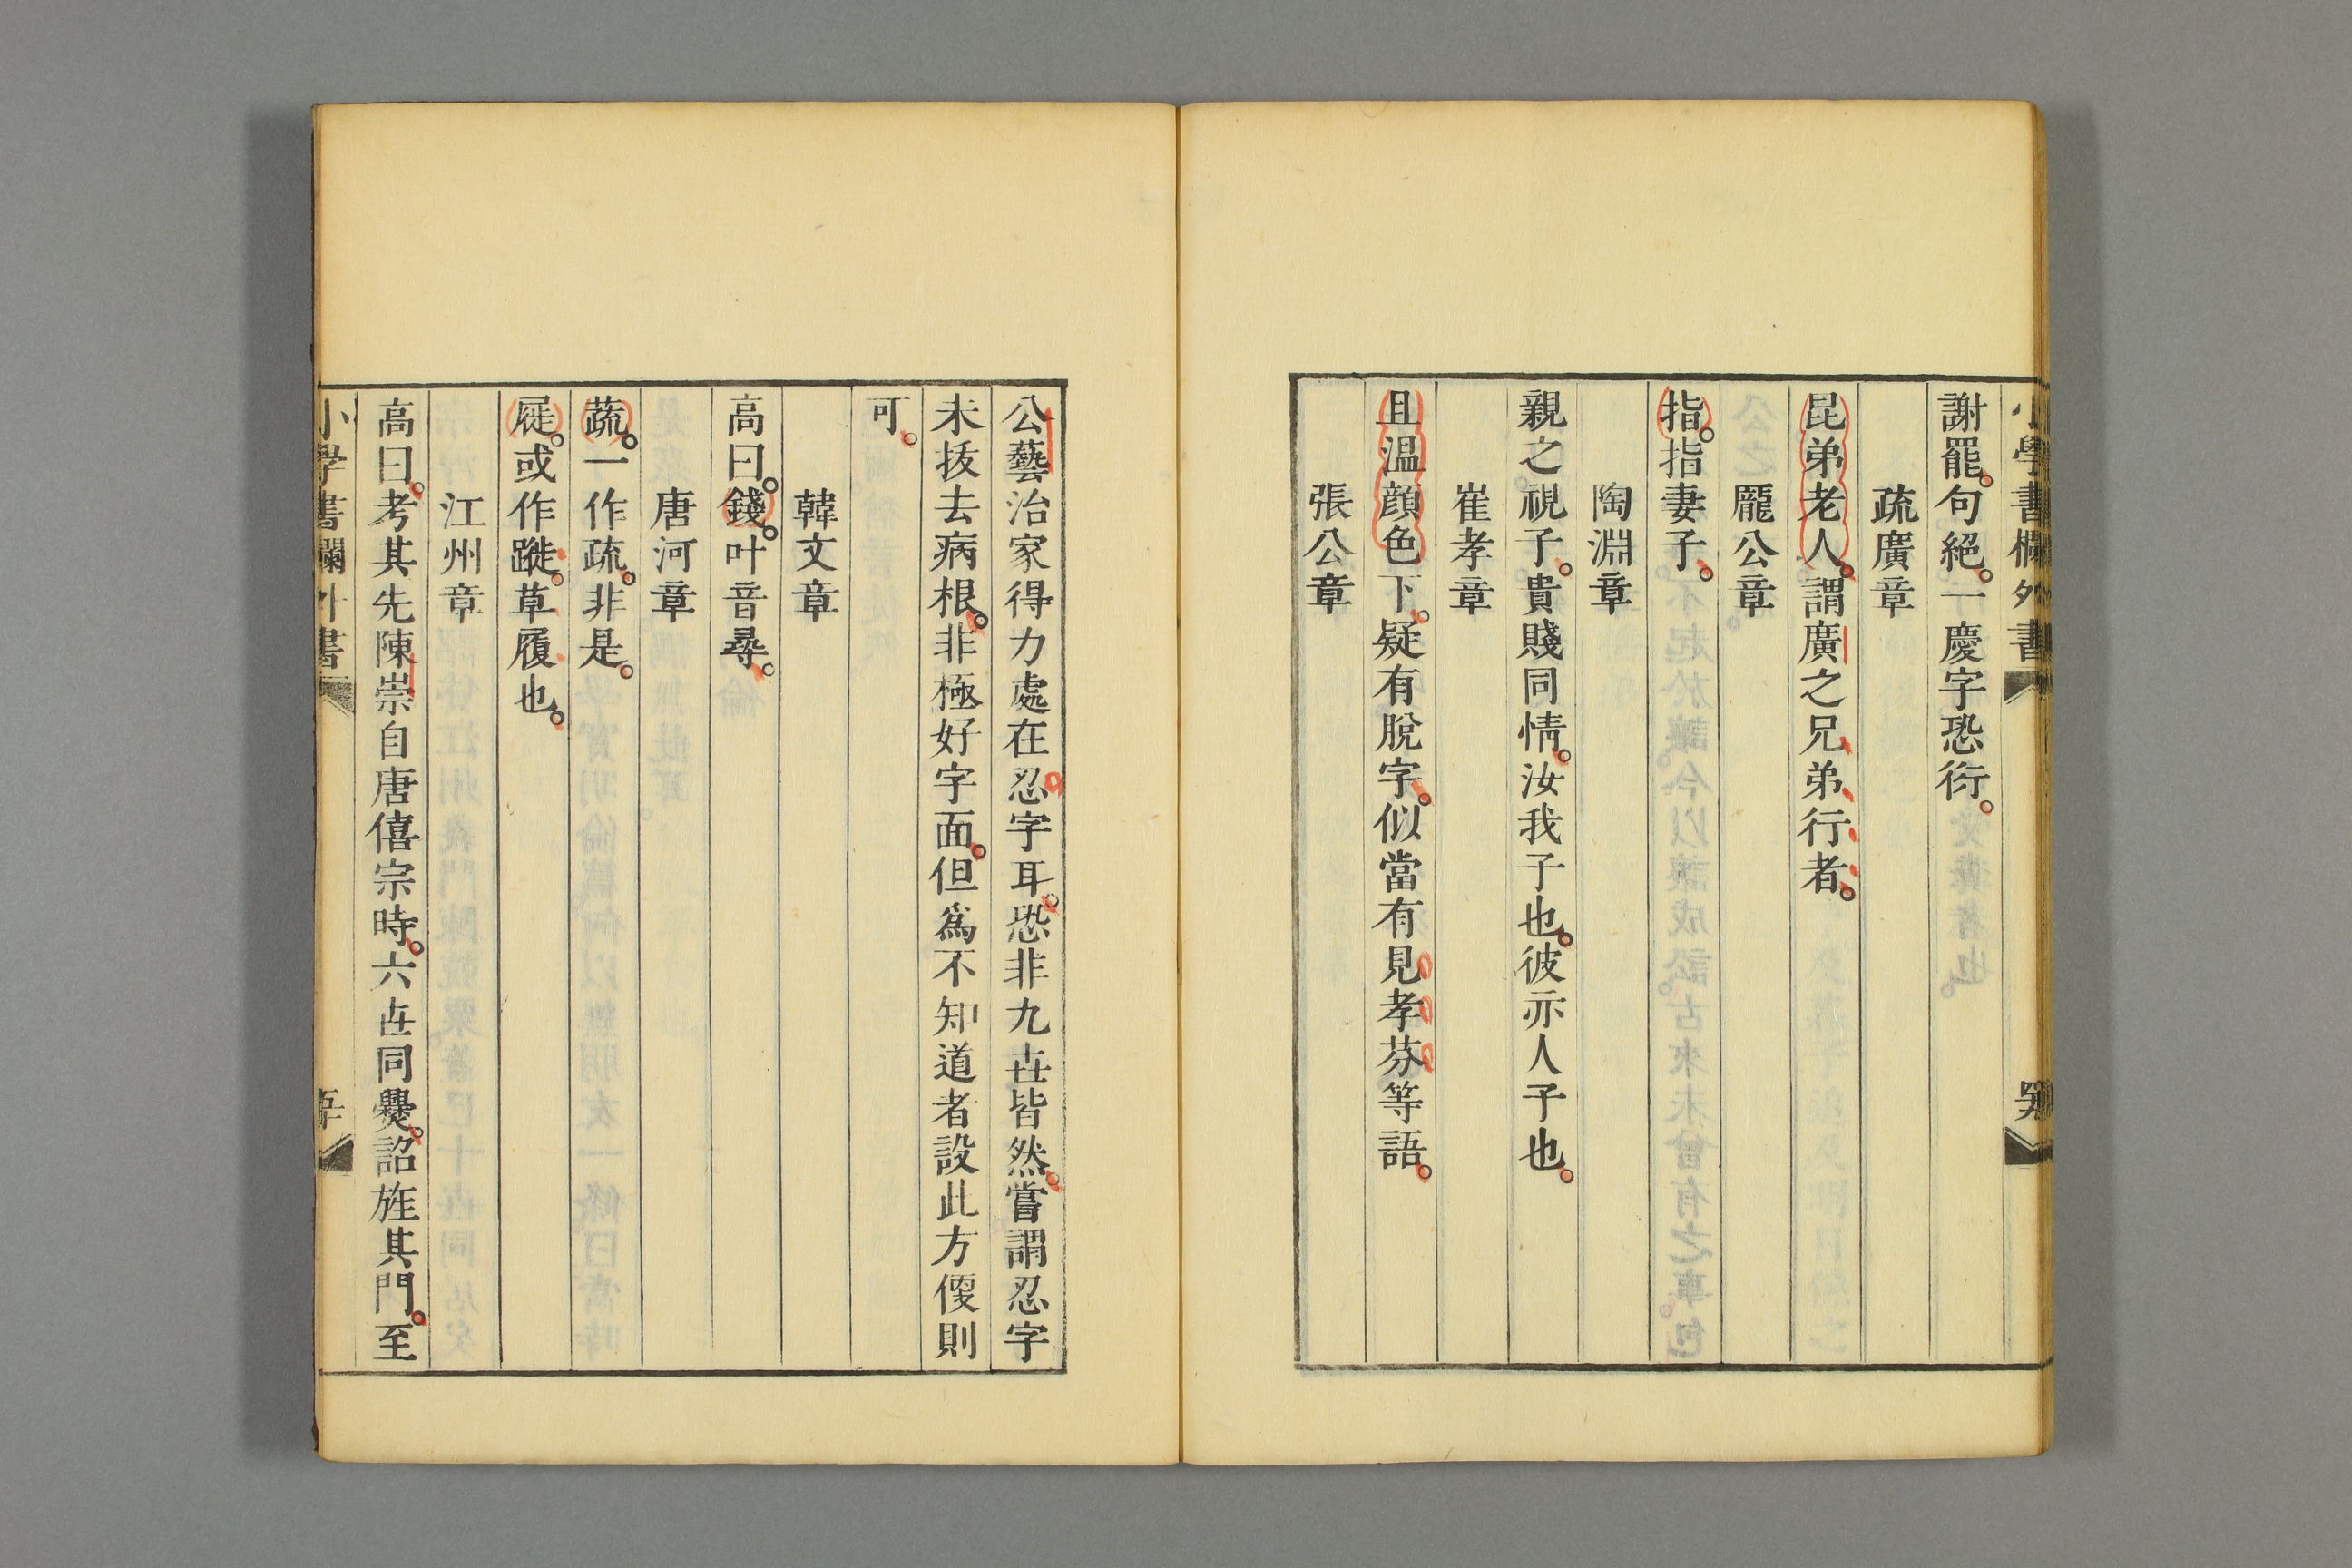 小學書欄外書
謝罷。句絕。一慶字恐衍。
疏廣章
昆弟老人。謂廣之兄弟行者。
龐公章
指。指妻子。
陶淵章
親之視子。貴賤同情。汝我子也。彼亦人子也。
崔孝章
且温顔色下。疑有脫字。似當有見孝芬等語。
張公章
公藝治家得力處在忍字耳。恐非九世皆然。嘗謂忍字
未拔去病根。非極好字面。但爲不知道者設此方便則
可。
韓文章
高曰。錢。叶音尋。
唐河章
蔬。一作疏。非是。
屣。或作蹝。草履也。
江州章
高曰。考其先陳崇自唐僖宗時。六世同爨。詔旌其門。至
小學書欄外書